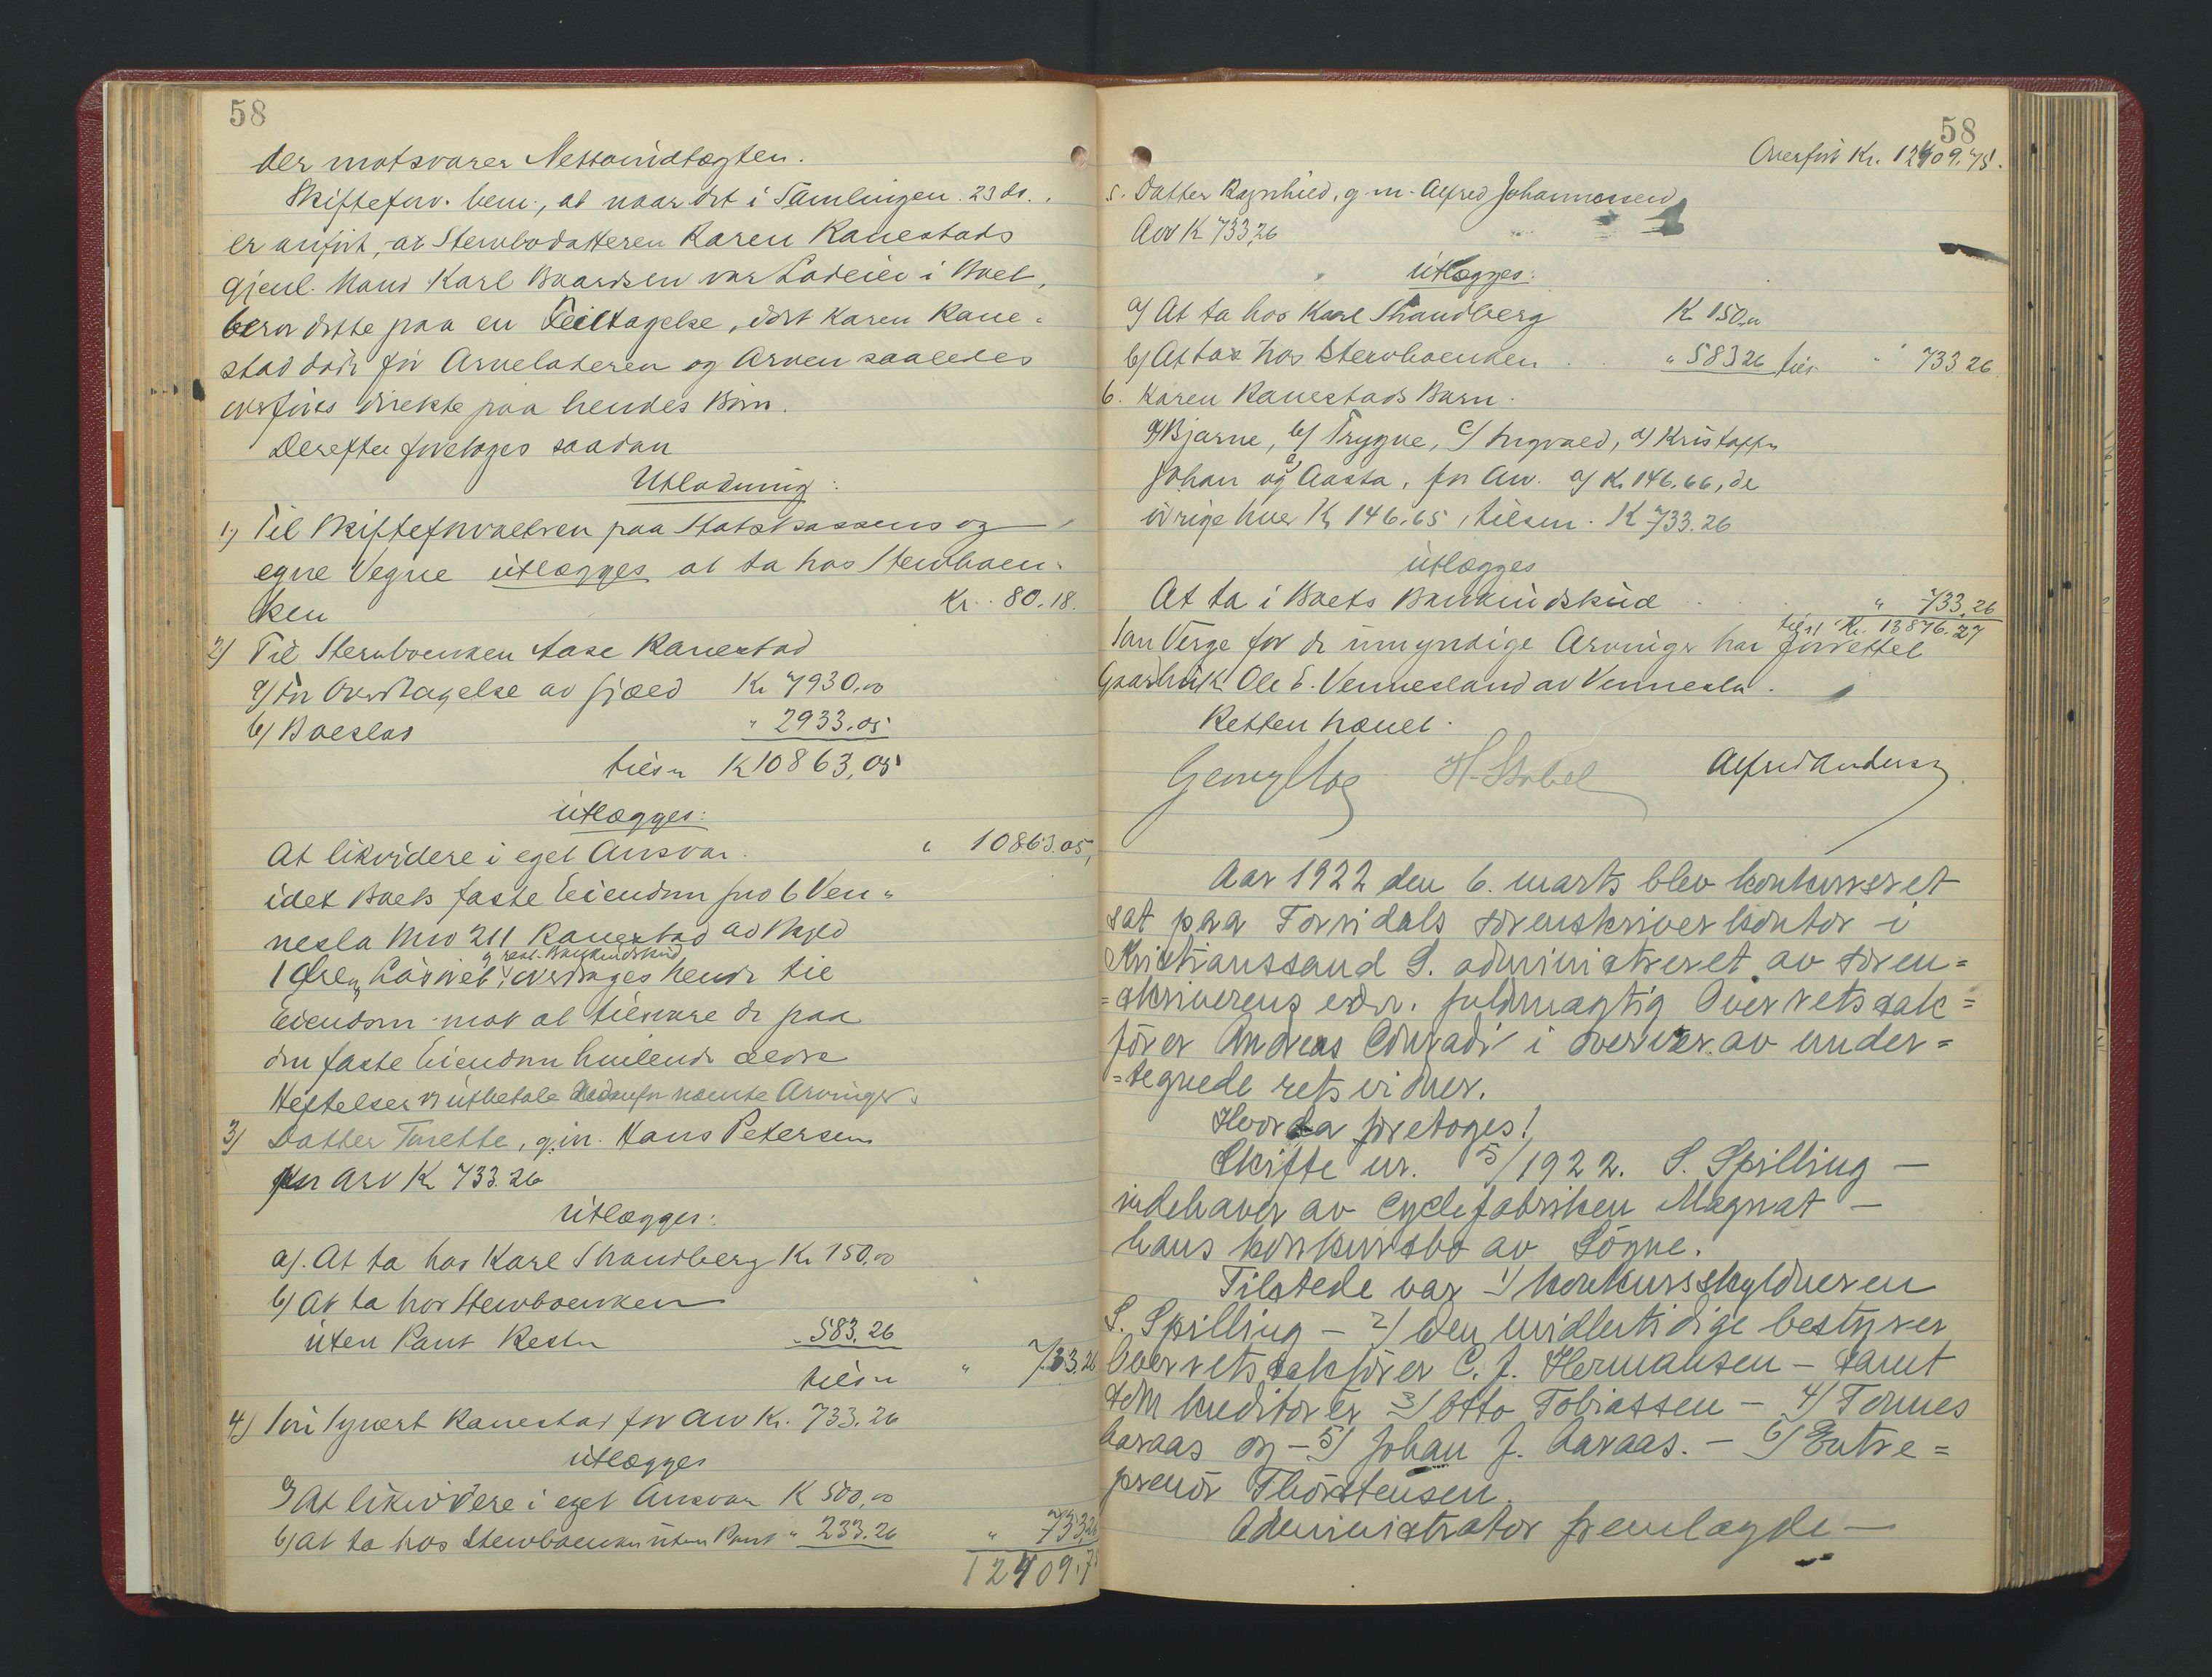 58
der motsvarer Nettoindtægten.
Skifteforv. bem., at naar det i Samlingen 23 ds.
er anført, at Stervbodatteren Karen Ranestads
gjenl. Mand Karl Baardsen var Lodeier i Boet,
beror dette paa en Feiltagelse, idet Karen Rane-
stad døde før Arveladeren og Arven saaledes
overføres direkte paa hendes Børn.
Derefter foretoges saadan
Utlodning:
1) Til Skifteforvalteren paa Statskassens og
egne Vegne utlægges at ta hos Stervboen-
ken Kr. 80.18.
2) Til Stervboenken Aase Ranestad
a) For Overtagelse av Gjæld Kr 7930,00
b) Boeslod " 2933.05
tilsm K 10863,05
utlægges:
At likvidere i eget Ansvar. " 10863.05,
idet Boets faste Eiendom gno 6 Ven-
nesla bno 211 Ranestad av Skyld
1 Øre og Løsøret overdrages hende til
og rest. Bankindskud
Eiendom mot at tilsvare de paa
den faste Eiendom hvilende ældre
Heftelser og utbetale nedenfor nævnte Arvinger.
3) Datter Torette, g.m. Hans Petersen
for Arv K 733.26
utlægges:
a). At ta hos Karl Strandberg Kr 150,00
b) At ta hos Stervboenken
uten Pant Resten " 583.26
tilsm " 733.26
4) Søn Syvert Ranestad for Arv Kr. 733.26
utlægges
a) At likvidere i eget Ansvar K 500,00
b) At ta hos Stervboenken uten Pant " 233.26 " 733,26
12409.75
58
Overført Kr. 12409.75.
5. Datter Ragnhild, g.m. Alfred Johannessen
Arv K 733,26
utlægges:
a) At ta hos Karl Strandberg K 150,00
b) At ta hos Stervboenken " 583 26 tils. " 733 26
6. Karen Ranestads Barn.
a) Bjarne, b) Trygve, c) Ingvald, d) Kristoffer
Johan og e) Aasta, for Arv. a) K. 146.66, de
øvrige hver K 146.65, tilsm. K 733.26
utlægges
At ta i Boets Bankindskud " 733,26
tilsm Kr. 13876.27
Som Verge for de umyndige Arvinger har forrettet
Gaardbruk. Ole E. Vennesland av Vennesla.
Retten hævet.
Georg H. Stabel Alfred Anderse
Aar 1922 den 6. marts blev konkursret
sat paa Torridals sorenskriverkontor i
Kristianssand S. administreret av soren-
=skriverens edsv. fuldmægtig Overretssak=
fører Andreas Conradi i overvær av under=
=tegnede retsvidner.
Hvorda foretoges!
Skifte nr. 5/1922. S. Spilling —
indehaver av Cyclefabriken Magnat —
hans konkursbo av Søgne.
Tilstede var 1/ konkursskyldneren
S. Spilling – 2/ den midlertidige bestyrer
Overretssakfører C. J. Hermansen – samt
som kreditorer 3/ Otto Tobiassen – 4/ Tønnes
Aaraas og – 5/ Johan J. Aaraas. – 6/ Entre=
prenør Thorstensen.
Administrator fremlagde —